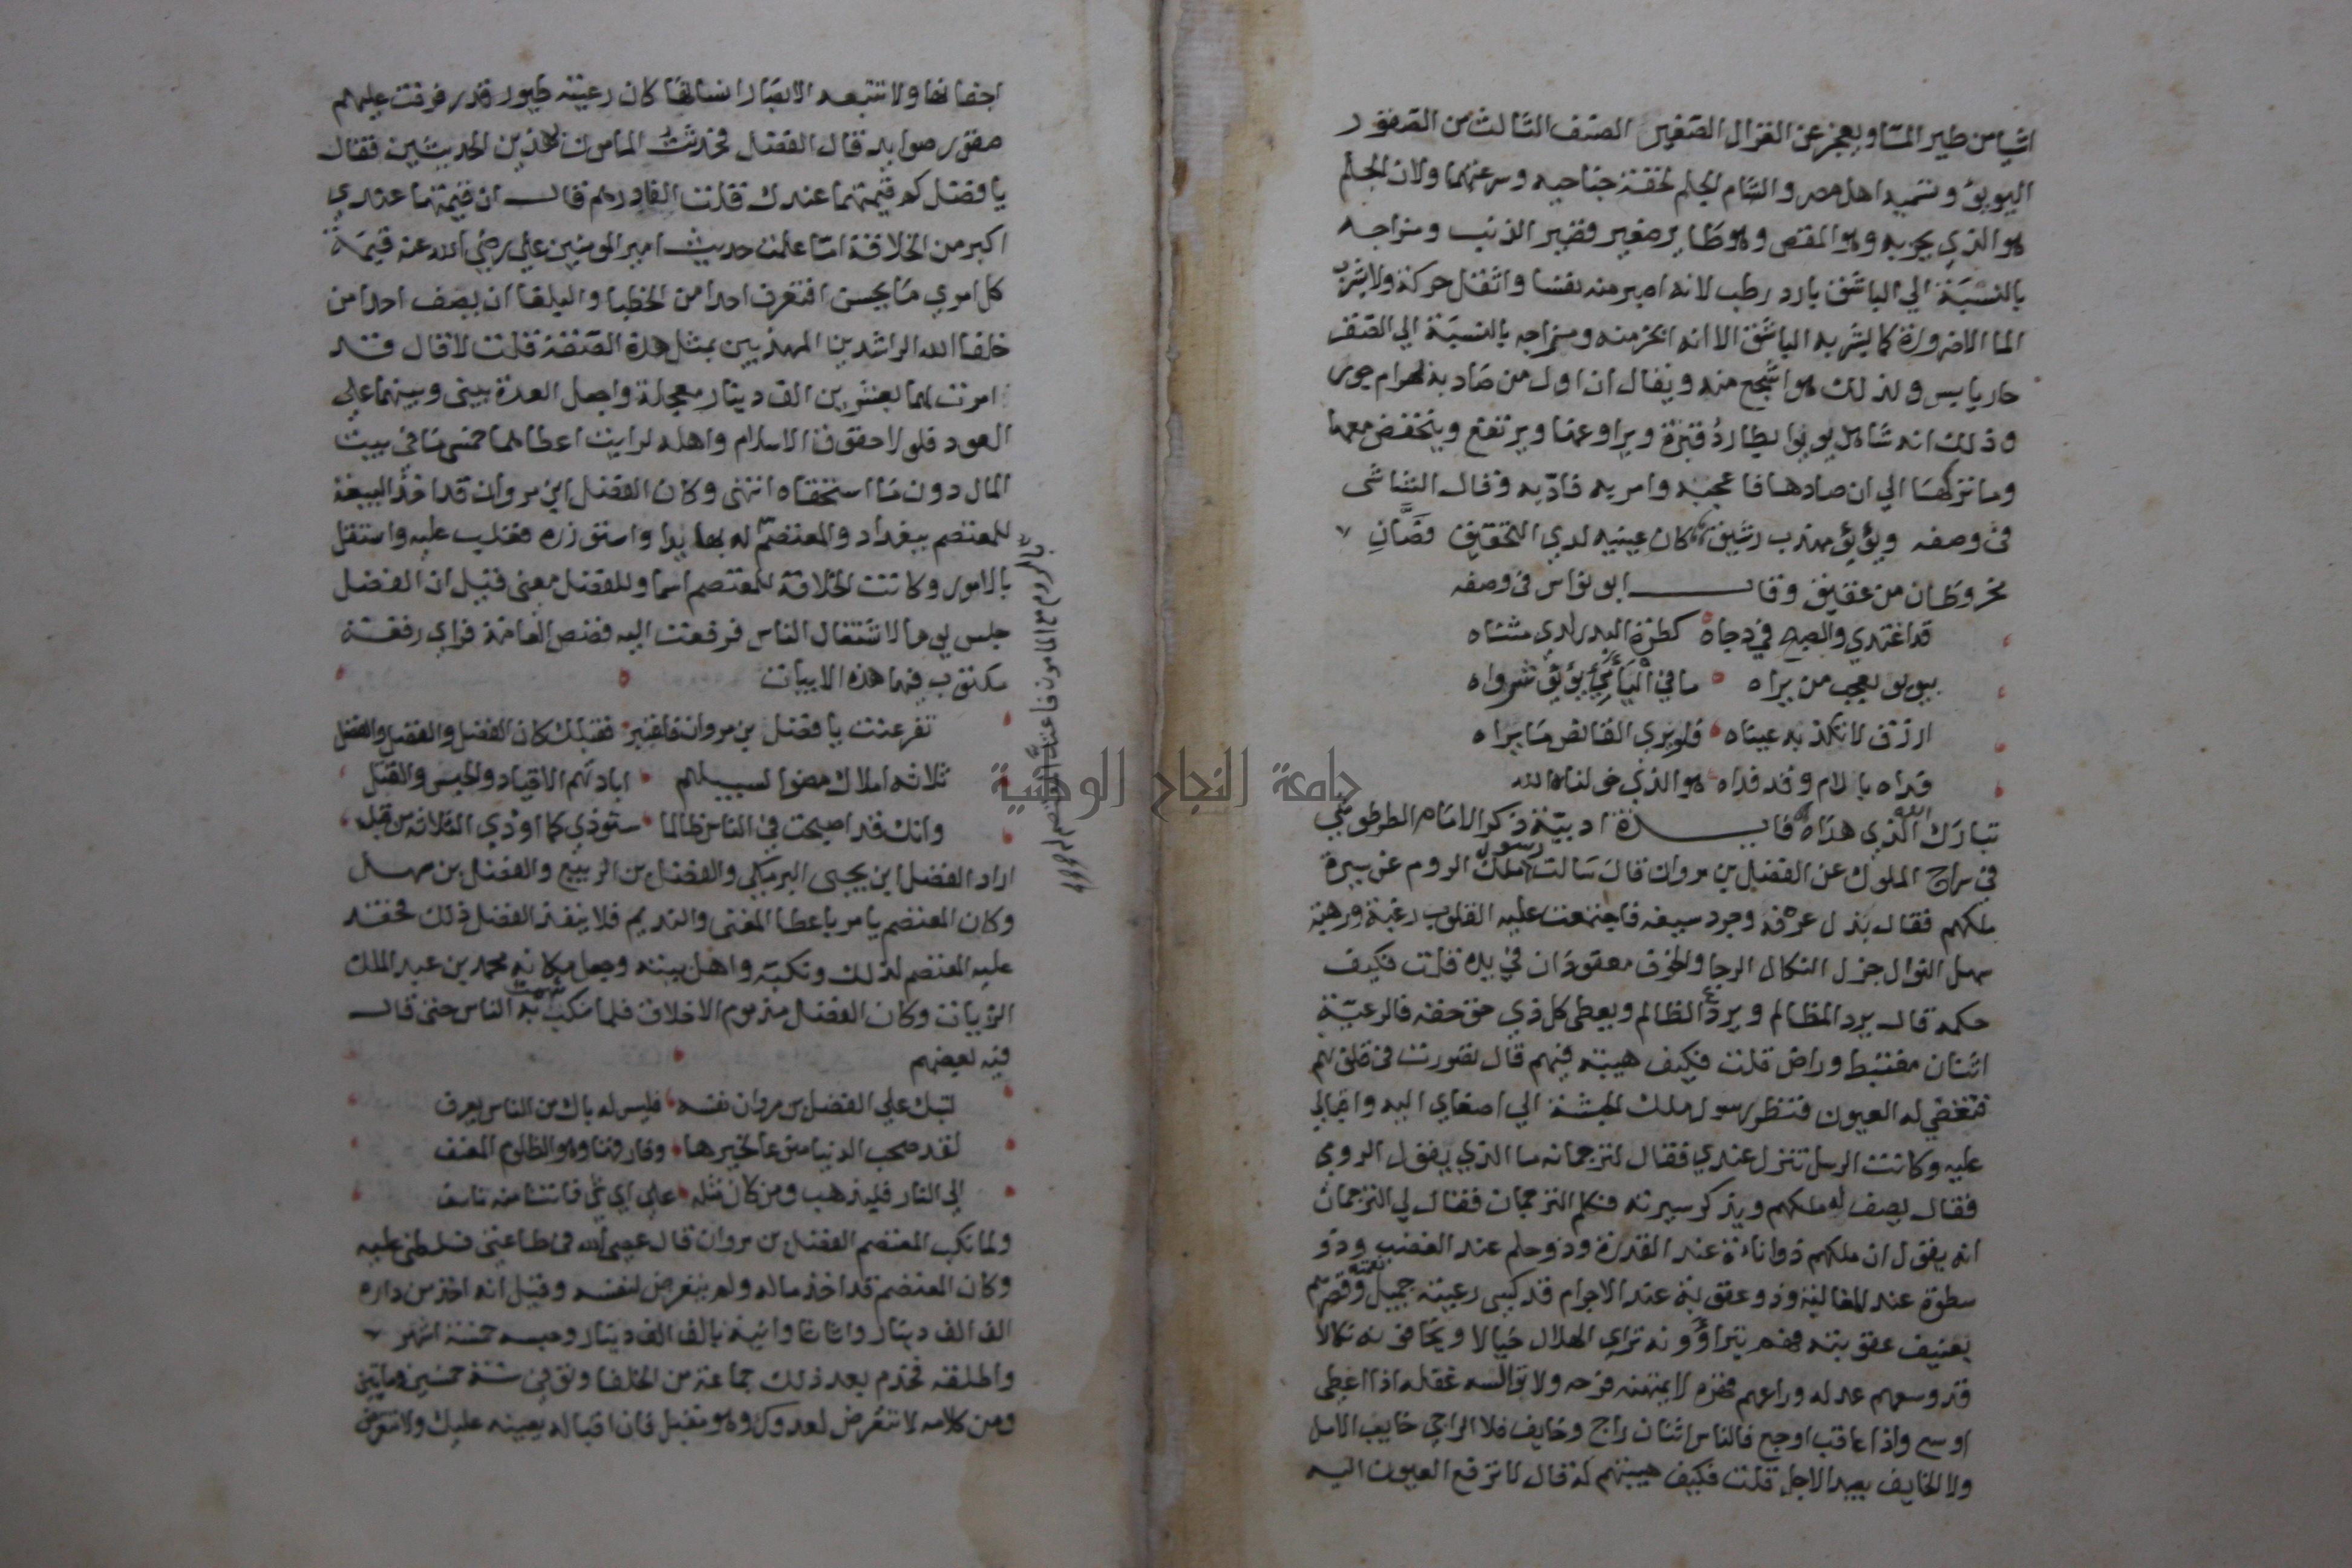 اشيا من طير الما ويعجز عن الغزال الصغير الصنف الثالث من الصقور
اليويو وتسميه اهل مصر والشام الجلم لخفة جناحيه وسرعتهما ولان الجلم
هو الذي يجز به وهو المقص وهو طاير صغير قصير الذنب ومزاجه
بالنسبة الي الباشق بارد رطب لانه اصبر منه نفسا واثقل حركة ولا يشرب
الما الا ضرورة كما يشربه الباشق الا انه ابخر منه ومزاجه بالنسبة الي الصقر
حار يابس ولذلك هو اشجع منه ويقال ان اول من صاد به بهرام جور
وذلك انه شاهد يويوا يطارد قنبرة ويراوغها ويرتفع وينخفض معها
وما تركها الي ان صادها فاعجبه وامر به فادبه وقال الناشي
في وصفه ويؤيؤ مهذب رشيق كان عينيه لدي التحقيق فصان
مخروطان من عقيق وقال ابو نواس في وصفه
قد اغتدي والصبح في دجاه كطرة البدر لدي مثناه
بيويو يعجب من يراه ما في اليآيي يؤيؤ شرواه
ازرق لا تكذبه عيناه فلو يري القانص ما يراه
فداه بالام وقد فداه هو الذي خولناه الله
تبارك الله الذي هداه فايدة ادبية ذكر الامام الطرطوشي
في سراج الملوك عن الفضل بن مروان قال سالت رسول ملك الروم عن سيرة
ملكهم فقال بذل عرفه وجرد سيفه فاجتمعت عليه القلوب رغبة ورهبة
سهل النوال جزل النكال الرجا والخوف معقودان في يده قلت فكيف
حكمه قال يرد المظالم ويردع الظالم ويعطي كل ذي حق حقه فالرعية
اثنان مغتبط وراض قلت فكيف هيبته فيهم قال تصورت في قلوبهم
فتغضي له العيون فنظر رسول ملك الحبشة الي اصغاي اليه واقبالي
عليه وكانت الرسل تنزل عندي فقال لترجمانه ما الذي يقول الرومي
فقال يصف له ملكهم ويذكر سيرته فكلم الترجمان فقال لي الترجمان
انه يقول ان ملكهم ذو اناة عند القدرة وذو حلم عند الغضب وذو
سطوة عند المغالبة وذو عقوبة عند الاجرام قد كسي رعيته جميل نعمته وقصرهم
بعنيف عقوبته فهم يتراؤونه تراي الهلال خيالا ويخافونه نكالا
قد وسعهم عدله وراعهم قهره لا يمتهنه مزحه ولا يوالسه غفلة اذا اعطي
اوسع واذا عاقب اوجع فالناس اثنان راج وخايف فلا الراجي خايب الامل
ولا الخايف بعيد الاجل قلت فكيف هيبتهم له قال لا ترفع العيون اليه
اجفانها ولا تتبعه الابصار انسانها كان رعيته طيور قد رفرفت عليهم
صقور صوايد قال الفضل فحدثت المامون بهذين الحديثين فقال
يا فضل كم قيمتهما عندك فقلت الفا درهم قال ان قيمتهما عندي
اكبر من الخلافة اما علمت حديث امير المومنين علي رضي الله عنه قيمة
كل امري ما يحسن افتعرف احدا من الخطبا والبلغا ان يصف احدا من
خلفا الله الراشدين المهذبين بمثل هذه الصفة قلت لا قال فقد
امرت لهما بعشرين الف دينار معجلة واجعل العدة بيني وبينهما علي
العود فلولا حقوق الاسلام واهله لرايت اعطاهما جميع ما في بيت
المال دون ما استحقاه انتهي وكان الفضل ابن مروان قد اخذ البيعة
للمعتصم ببغداد والمعتصم له بها يدا واستوزره فغلب عليه واستقل
بالامور وكانت الخلافة للمعتصم اسما وللفضل معني قيل ان الفضل
جلس يوما لاشتغال الناس فرفعت اليه قصص العامة فراي رقعة
مكتوب فيها هذه الابيات
تفرعنت يا فضل بن مروان فاعتبر فقبلك كان الفضل والفضل والفضل
ثلاثة املاك مضوا لسبيلهم ابادتهم الاقياد والحبس والقتل
وانك قد اصبحت في الناس ظالما ستوذي كما اوذي الثلاثة من قبل
اراد الفضل ابن يحيي البرمكي والفضل بن الربيع والفضل بن سهل
وكان المعتصم يامر باعطا المغني والنديم فلا ينفذ الفضل ذلك فحقد
عليه المعتصم لذلك ونكبه واهل بيته وجعل مكانه محمد بن عبد الملك
الزيات وكان الفضل مذموم الاخلاق فلما نكب شمت به الناس حتي قال
فيه بعضهم
لتبك علي الفضل بن مروان نفسه فليس له باك من الناس يعرف
لقد صحب الدنيا منوعا لخيرها وفارقها وهو الظلوم المعنف
الي النار فليذهب ومن كان مثله علي اي شي فاتنا منه ناسف
ولما نكب المعتصم الفضل بن مروان قال عصي الله في طاعتي فسلطني عليه
وكان المعتصم قد اخذ ماله ولم يتعرض لنفسه وقيل انه اخذ من داره
الف الف دينار واثاثا وانية بالف الف دينار وحبسه خمسة اشهر
واطلقه فخدم بعد ذلك جماعة من الخلفا وتوفي سنة خمسين ومايتين
ومن كلامه لا تتعرض لعدوك وهو مقبل فان اقباله يعينه عليك ولا تتعرض
بالروم مع المامون فاعتد المعتصم
جامعة النجاح الوطنية